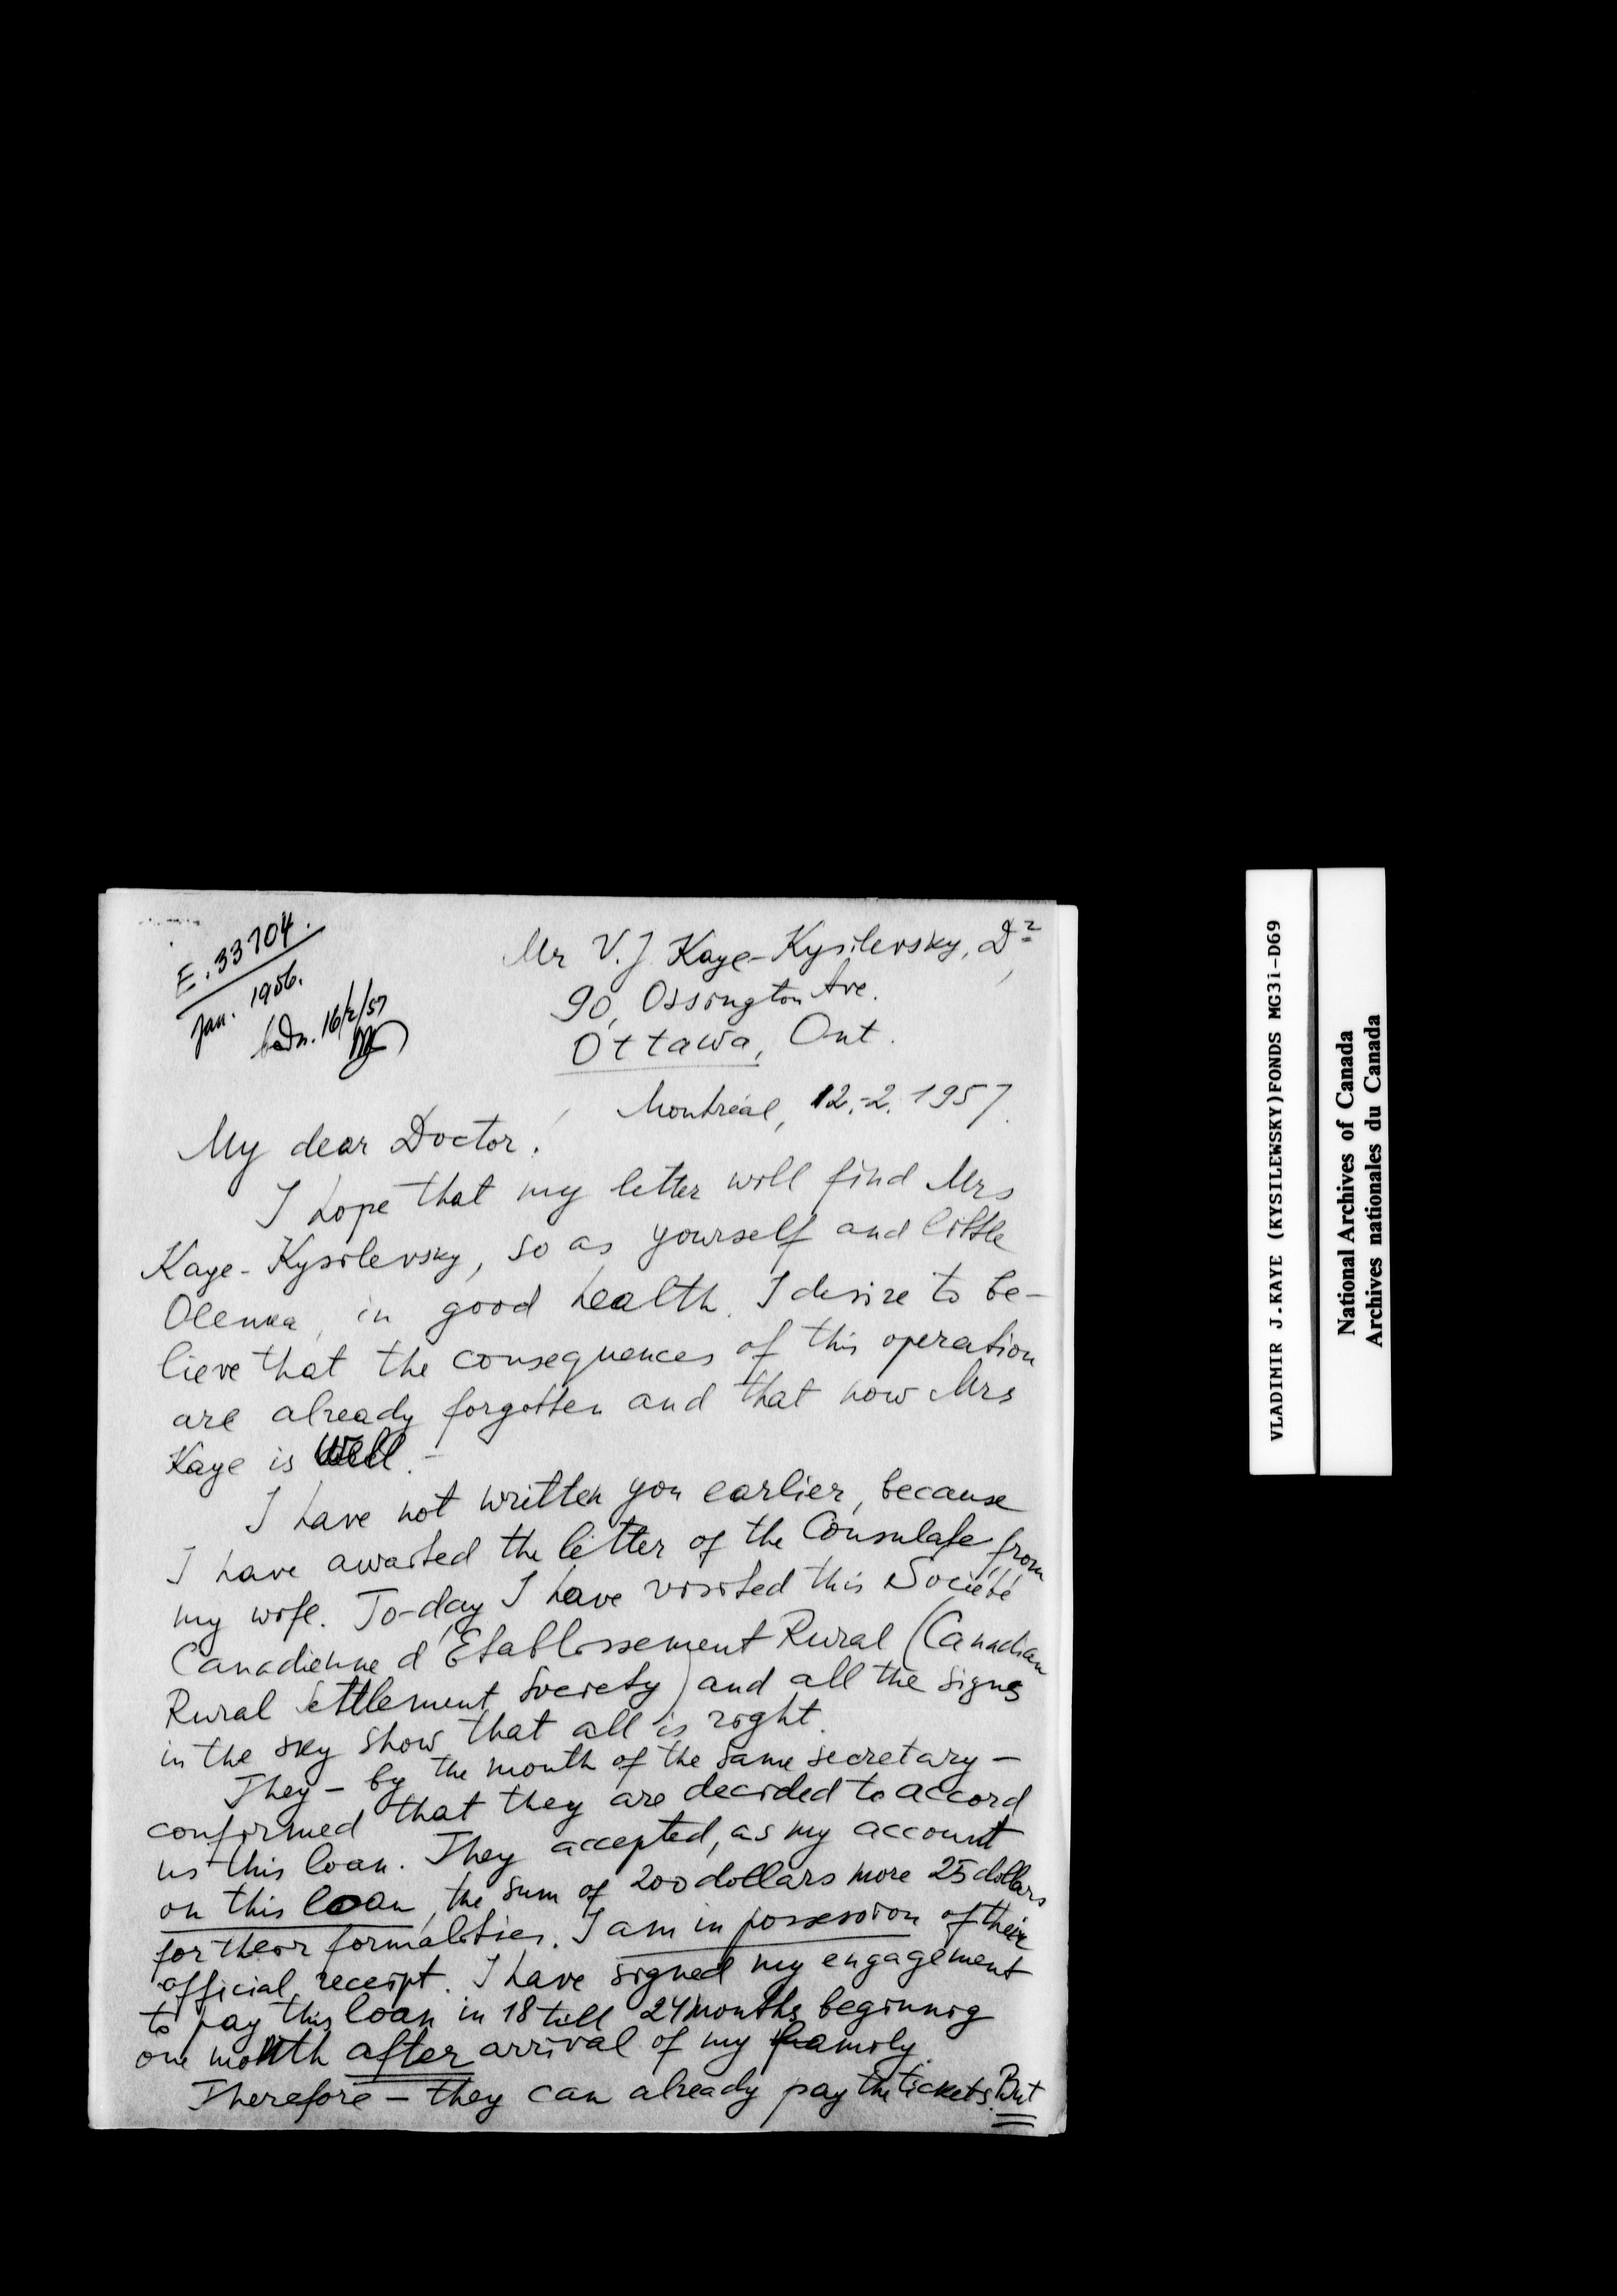 E. 33704.
Jan. 1956.
16/2/57
Mr V. J Kaye-Kysilevsky, Dr,
90, Ossington Ave.
Ottawa, Ont.
Montréal, 12.-2. 1957.
My dear Doctor!
I hope that my letter will find Mrs
Kaye-Kysilevsky, so as yourself and little
Olenka, in good health. I desire to be-
lieve that the consequences of this operation
are already forgotten and that now Mrs
Kaye is well.-
I have not written you earlier, because
I have awaited the letter of the Consulate from
my wife. To-day I have visited this Société
Canadienne d'Etablissement Rural (Canadian
Rural Settlement Society) and all the signs
in the sky show that all is right.
They - by the mouth of the same secretary -
confirmed that they are decided to accord
us this loan. They accepted, as my account
on this loan, the sum of 200 dollars more 25 dollars
for their formalities. I am in possession of their
official receipt. I have signed my engagement
to pay this loan in 18 till 24 months beginnig
one month after arrival of my family.
Therefore - they can already pay the tickets. But
VLADIMIR J.KAYE (KYSILEWSKY)FONDS MG31-D69
National Archives of Canada
Archives nationales du Canada